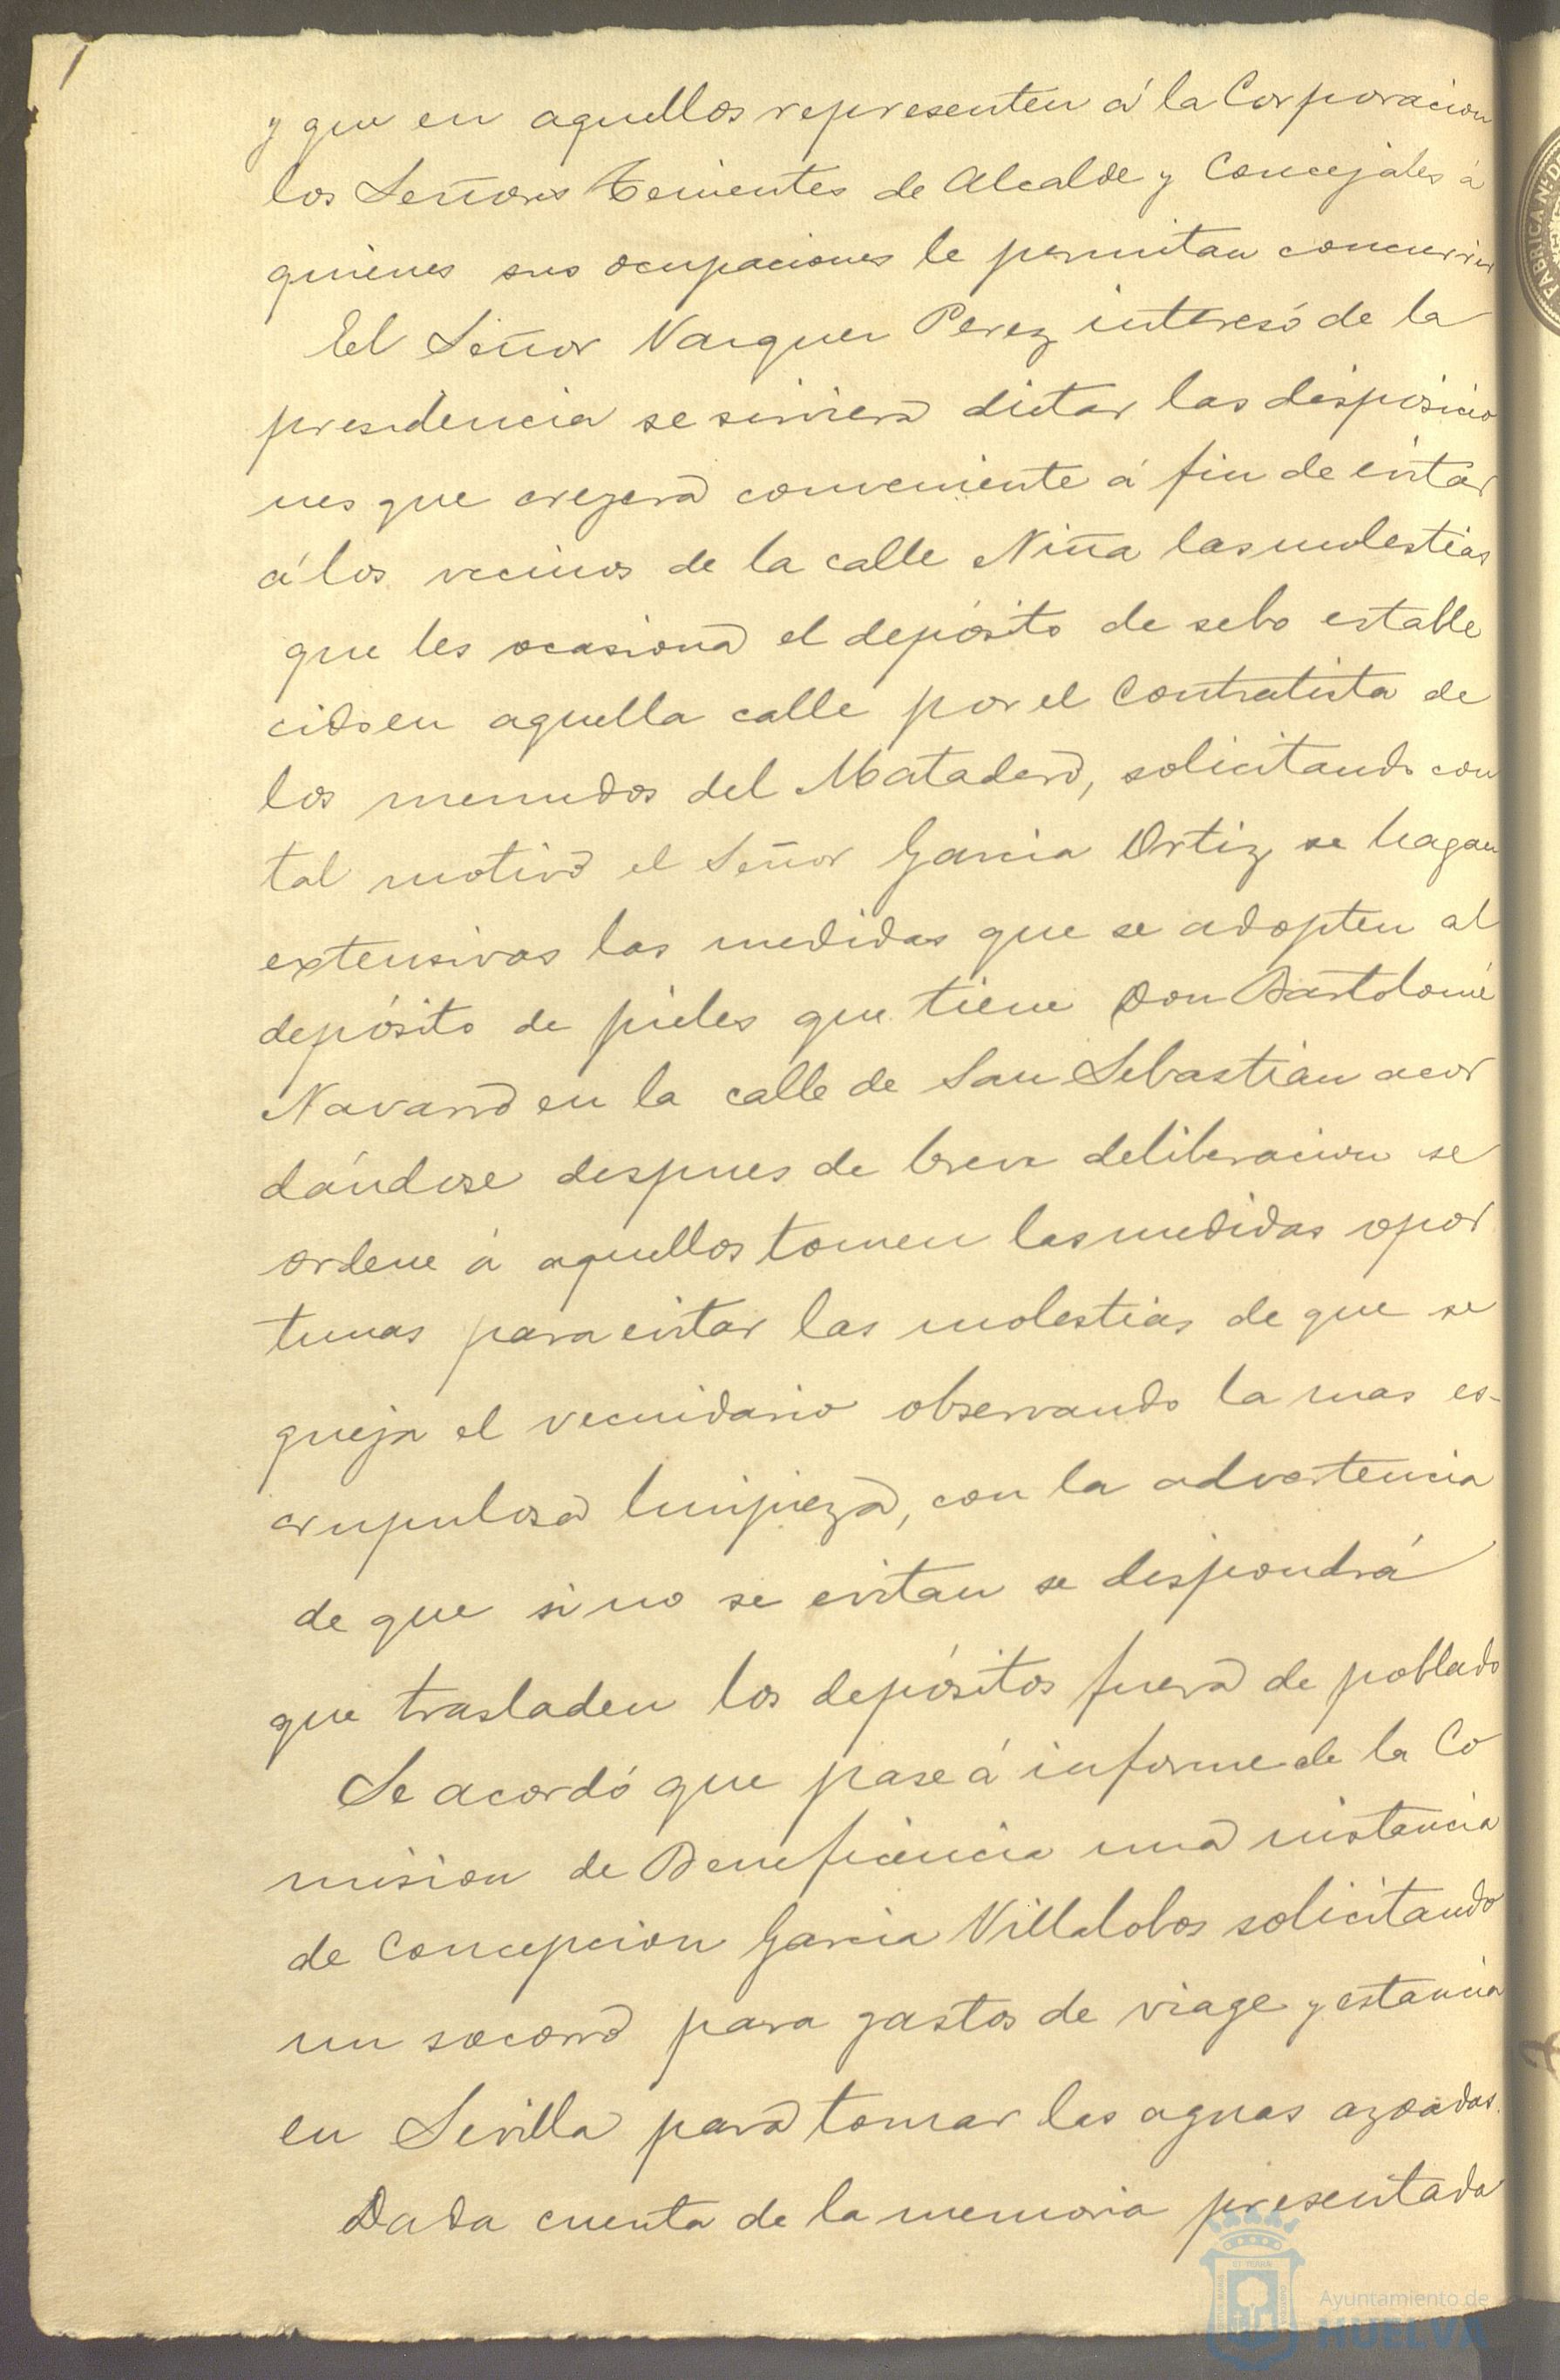 y que en aquellos representen á la Corporacion
los Señores Tenientes de Alcalde y Concejales á
quienes sus ocupaciones le permitan concurrir
El Señor Vazquez Perez interesó de la
presidencia se sirviera dictar las disposicio
nes que creyera conveniente á fin de evitar
á los vecinos de la calle Niña las molestias
que les ocasiona el depósito de sebo estable
cido en aquella calle por el Contratista de
los menudos del Matadero, solicitando con
tal motivo el Señor Garcia Ortiz se hagan
extensivas las medidas que se adopten al
depósito de pieles que tiene Don Bartolomé
Navarro en la calle de San Sebastián acor
dándose despues de breve deliberacion se
ordene á aquellos tomen las medidas opor
tunas para evitar las molestias de que se
queja el vecindario observando la mas es-
crupulosa limpieza, con la advertencia
de que si no se evitan se dispondrá
que trasladen los depósitos fuera de poblado
Se acordó que pase á informe de la Co
mision de Beneficencia una instancia
de Concepcion Garcia Villalobos solicitando
un socorro para gastos de viage y estancia
en Sevilla para tomar las aguas azoadas.
Dada cuenta de la memoria presentada
Ayuntamiento de
HUELVA